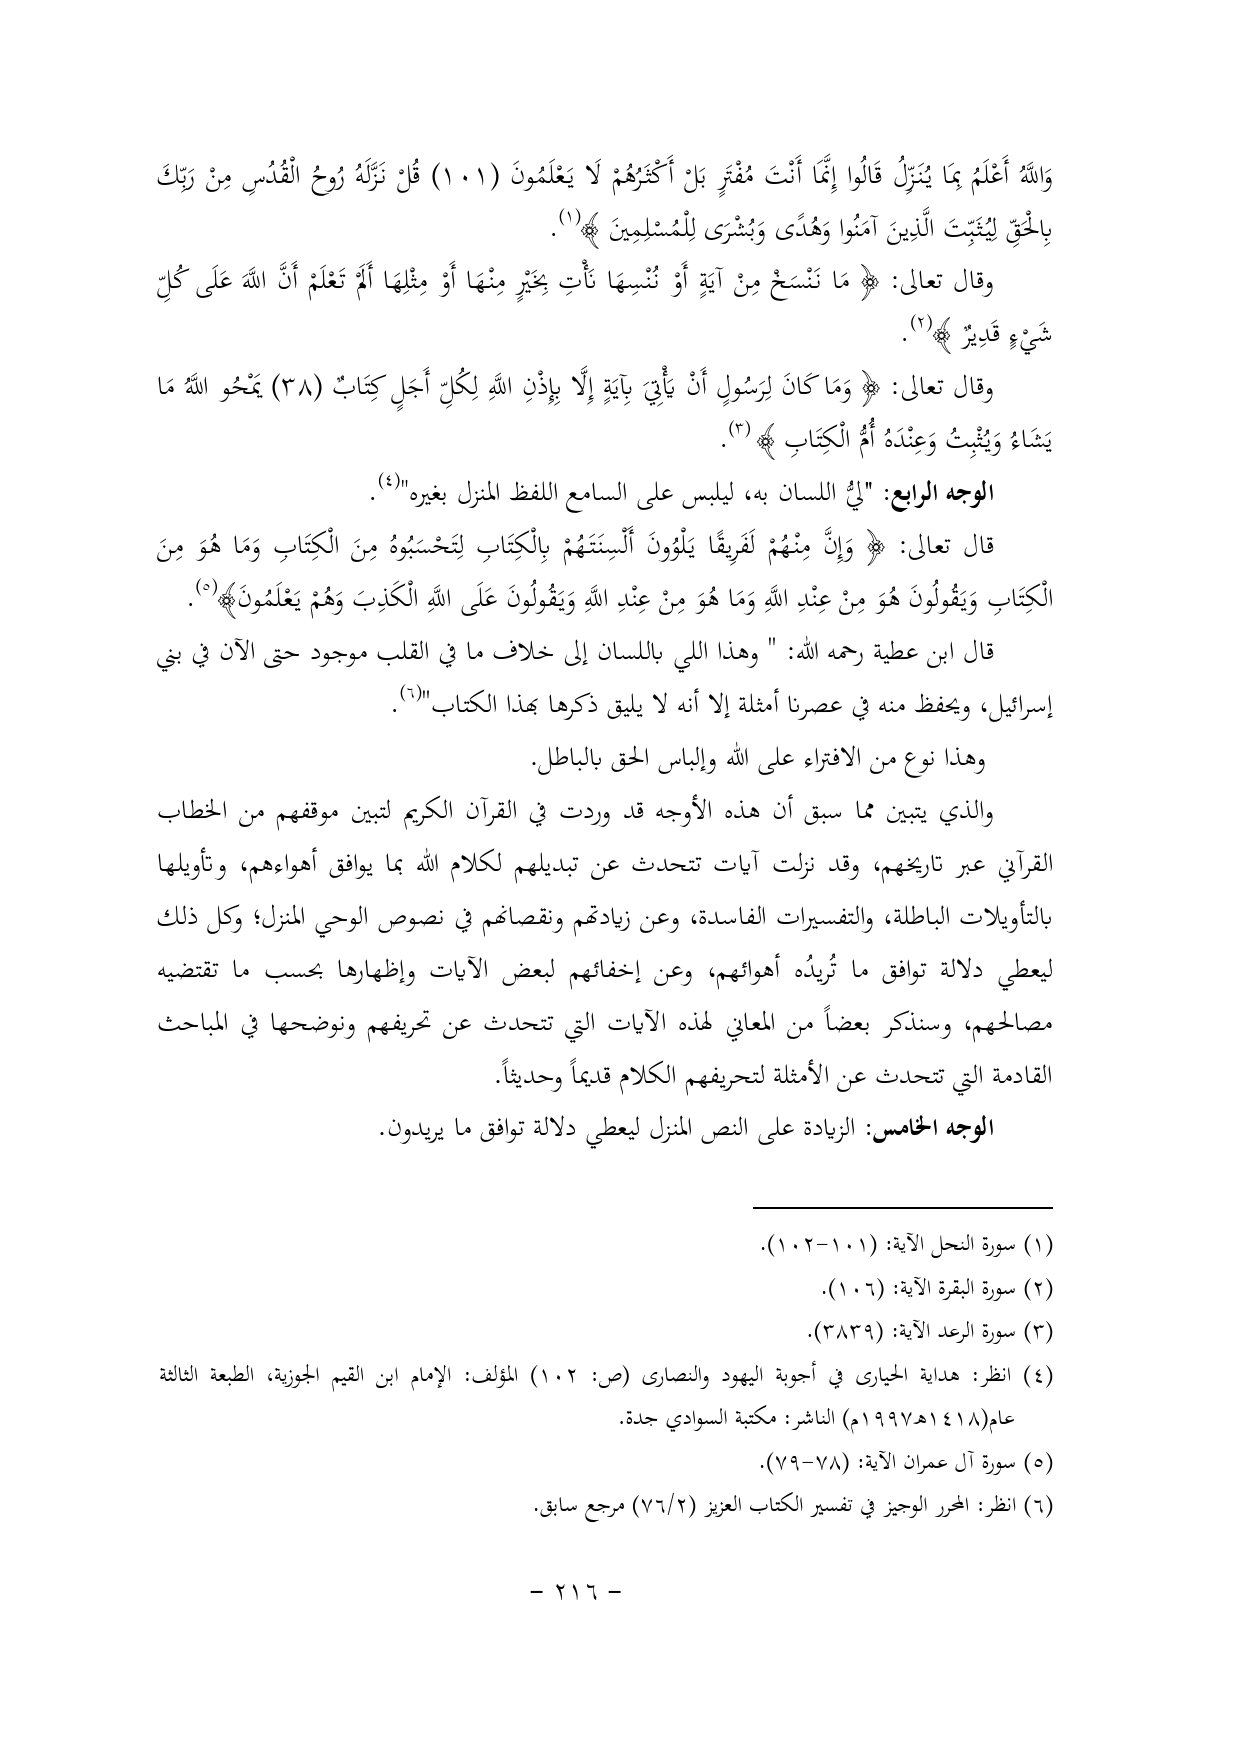 وَاللَّهُ أَعْلَمُ بِمَا يُنَزِّلُ قَالُوا إِنَّمَا أَنْتَ مُفْتَرٍ بَلْ أَكْثَرُهُمْ لَا يَعْلَمُونَ (١٠١) قُلْ نَزَّلَهُ رُوحُ الْقُدُسِ مِنْ رَبِّكَ
بِالْحَقِّ لِيُثَبِّتَ الَّذِينَ آمَنُوا وَهُدًى وَبُشْرَى لِلْمُسْلِمِينَ ﴾(١).
وقال تعالى: ﴿ مَا نَنْسَخْ مِنْ آيَةٍ أَوْ نُنْسِهَا نَأْتِ بِخَيْرٍ مِنْهَا أَوْ مِثْلِهَا أَلَمْ تَعْلَمْ أَنَّ اللَّهَ عَلَى كُلِّ
شَيْءٍ قَدِيرٌ ﴾(٢).
وقال تعالى: ﴿ وَمَا كَانَ لِرَسُولٍ أَنْ يَأْتِيَ بِآيَةٍ إِلَّا بِإِذْنِ اللَّهِ لِكُلِّ أَجَلٍ كِتَابٌ (٣٨) يَمْحُو اللَّهُ مَا
يَشَاءُ وَيُثْبِتُ وَعِنْدَهُ أُمُّ الْكِتَابِ ﴾ (٣).
الوجه الرابع: "ليُّ اللسان به، ليلبس على السامع اللفظ المنزل بغيره"(٤).
قال تعالى: ﴿ وَإِنَّ مِنْهُمْ لَفَرِيقًا يَلْوُونَ أَلْسِنَتَهُمْ بِالْكِتَابِ لِتَحْسَبُوهُ مِنَ الْكِتَابِ وَمَا هُوَ مِنَ
الْكِتَابِ وَيَقُولُونَ هُوَ مِنْ عِنْدِ اللَّهِ وَمَا هُوَ مِنْ عِنْدِ اللَّهِ وَيَقُولُونَ عَلَى اللَّهِ الْكَذِبَ وَهُمْ يَعْلَمُونَ﴾(٥).
قال ابن عطية رحمه الله: " وهذا اللي باللسان إلى خلاف ما في القلب موجود حتى الآن في بني
إسرائيل، ويحفظ منه في عصرنا أمثلة إلا أنه لا يليق ذكرها بهذا الكتاب"(٦).
وهذا نوع من الافتراء على الله وإلباس الحق بالباطل.
والذي يتبين مما سبق أن هذه الأوجه قد وردت في القرآن الكريم لتبين موقفهم من الخطاب
القرآني عبر تاريخهم، وقد نزلت آيات تتحدث عن تبديلهم لكلام الله بما يوافق أهواءهم، وتأويلها
بالتأويلات الباطلة، والتفسيرات الفاسدة، وعن زيادتهم ونقصانهم في نصوص الوحي المنزل؛ وكل ذلك
ليعطي دلالة توافق ما تُريدُه أهوائهم، وعن إخفائهم لبعض الآيات وإظهارها بحسب ما تقتضيه
مصالحهم، وسنذكر بعضاً من المعاني لهذه الآيات التي تتحدث عن تحريفهم ونوضحها في المباحث
القادمة التي تتحدث عن الأمثلة لتحريفهم الكلام قديماً وحديثاً.
الوجه الخامس: الزيادة على النص المنزل ليعطي دلالة توافق ما يريدون.
(١) سورة النحل الآية: (١٠١-١٠٢).
(٢) سورة البقرة الآية: (١٠٦).
(٣) سورة الرعد الآية: (٣٨٣٩).
(٤) انظر: هداية الحيارى في أجوبة اليهود والنصارى (ص: ١٠٢) المؤلف: الإمام ابن القيم الجوزية، الطبعة الثالثة
عام(١٤١٨هـ١٩٩٧م) الناشر: مكتبة السوادي جدة.
(٥) سورة آل عمران الآية: (٧٨-٧٩).
(٦) انظر: المحرر الوجيز في تفسير الكتاب العزيز (٧٦/٢) مرجع سابق.
- ٢١٦ -